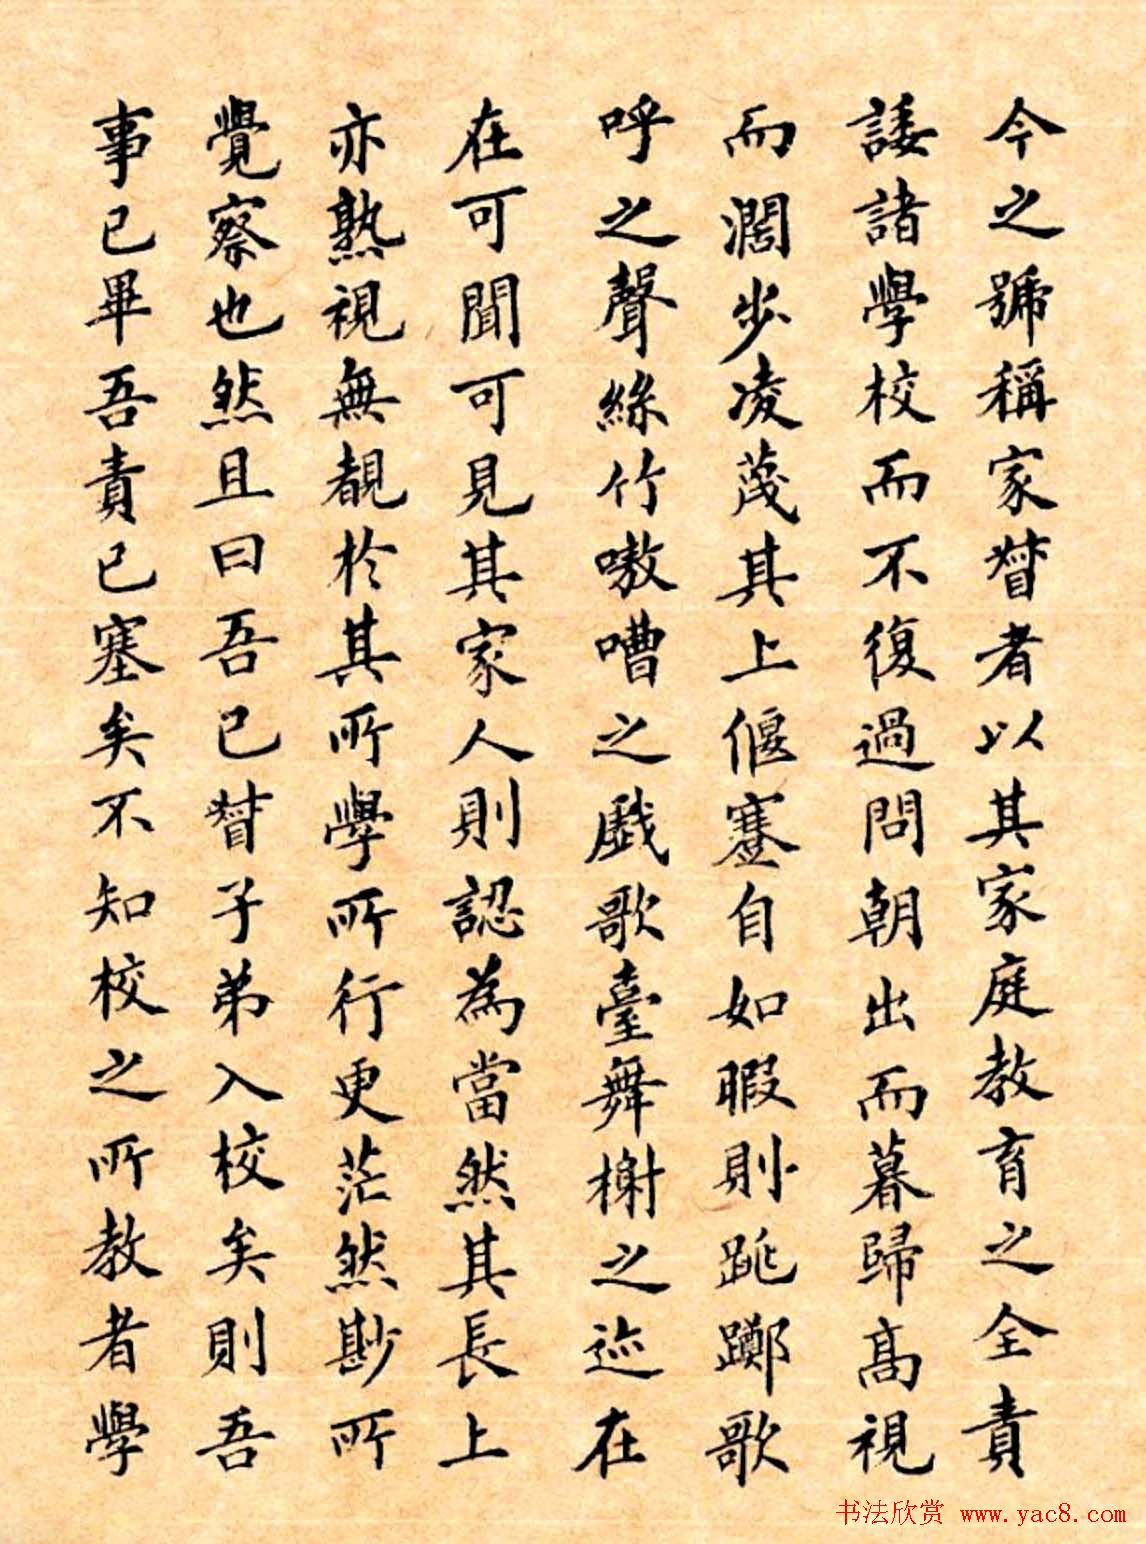 今之號稱家督者以其家庭教育之全責
諉諸學校而不復過問朝出而暮歸高視
而濶步凌蔑其上偃蹇自如暇則跳躑歌
呼之聲絲竹嗷嘈之戲歌臺舞榭之迹在
在可聞可見其家人則認為當然其長上
亦熟視無覩於其所學所行更茫然尠所
覺察也然且曰吾已督子弟入校矣則吾
事已畢吾責已塞矣不知校之所教者學
书法欣赏 www.yac8.com